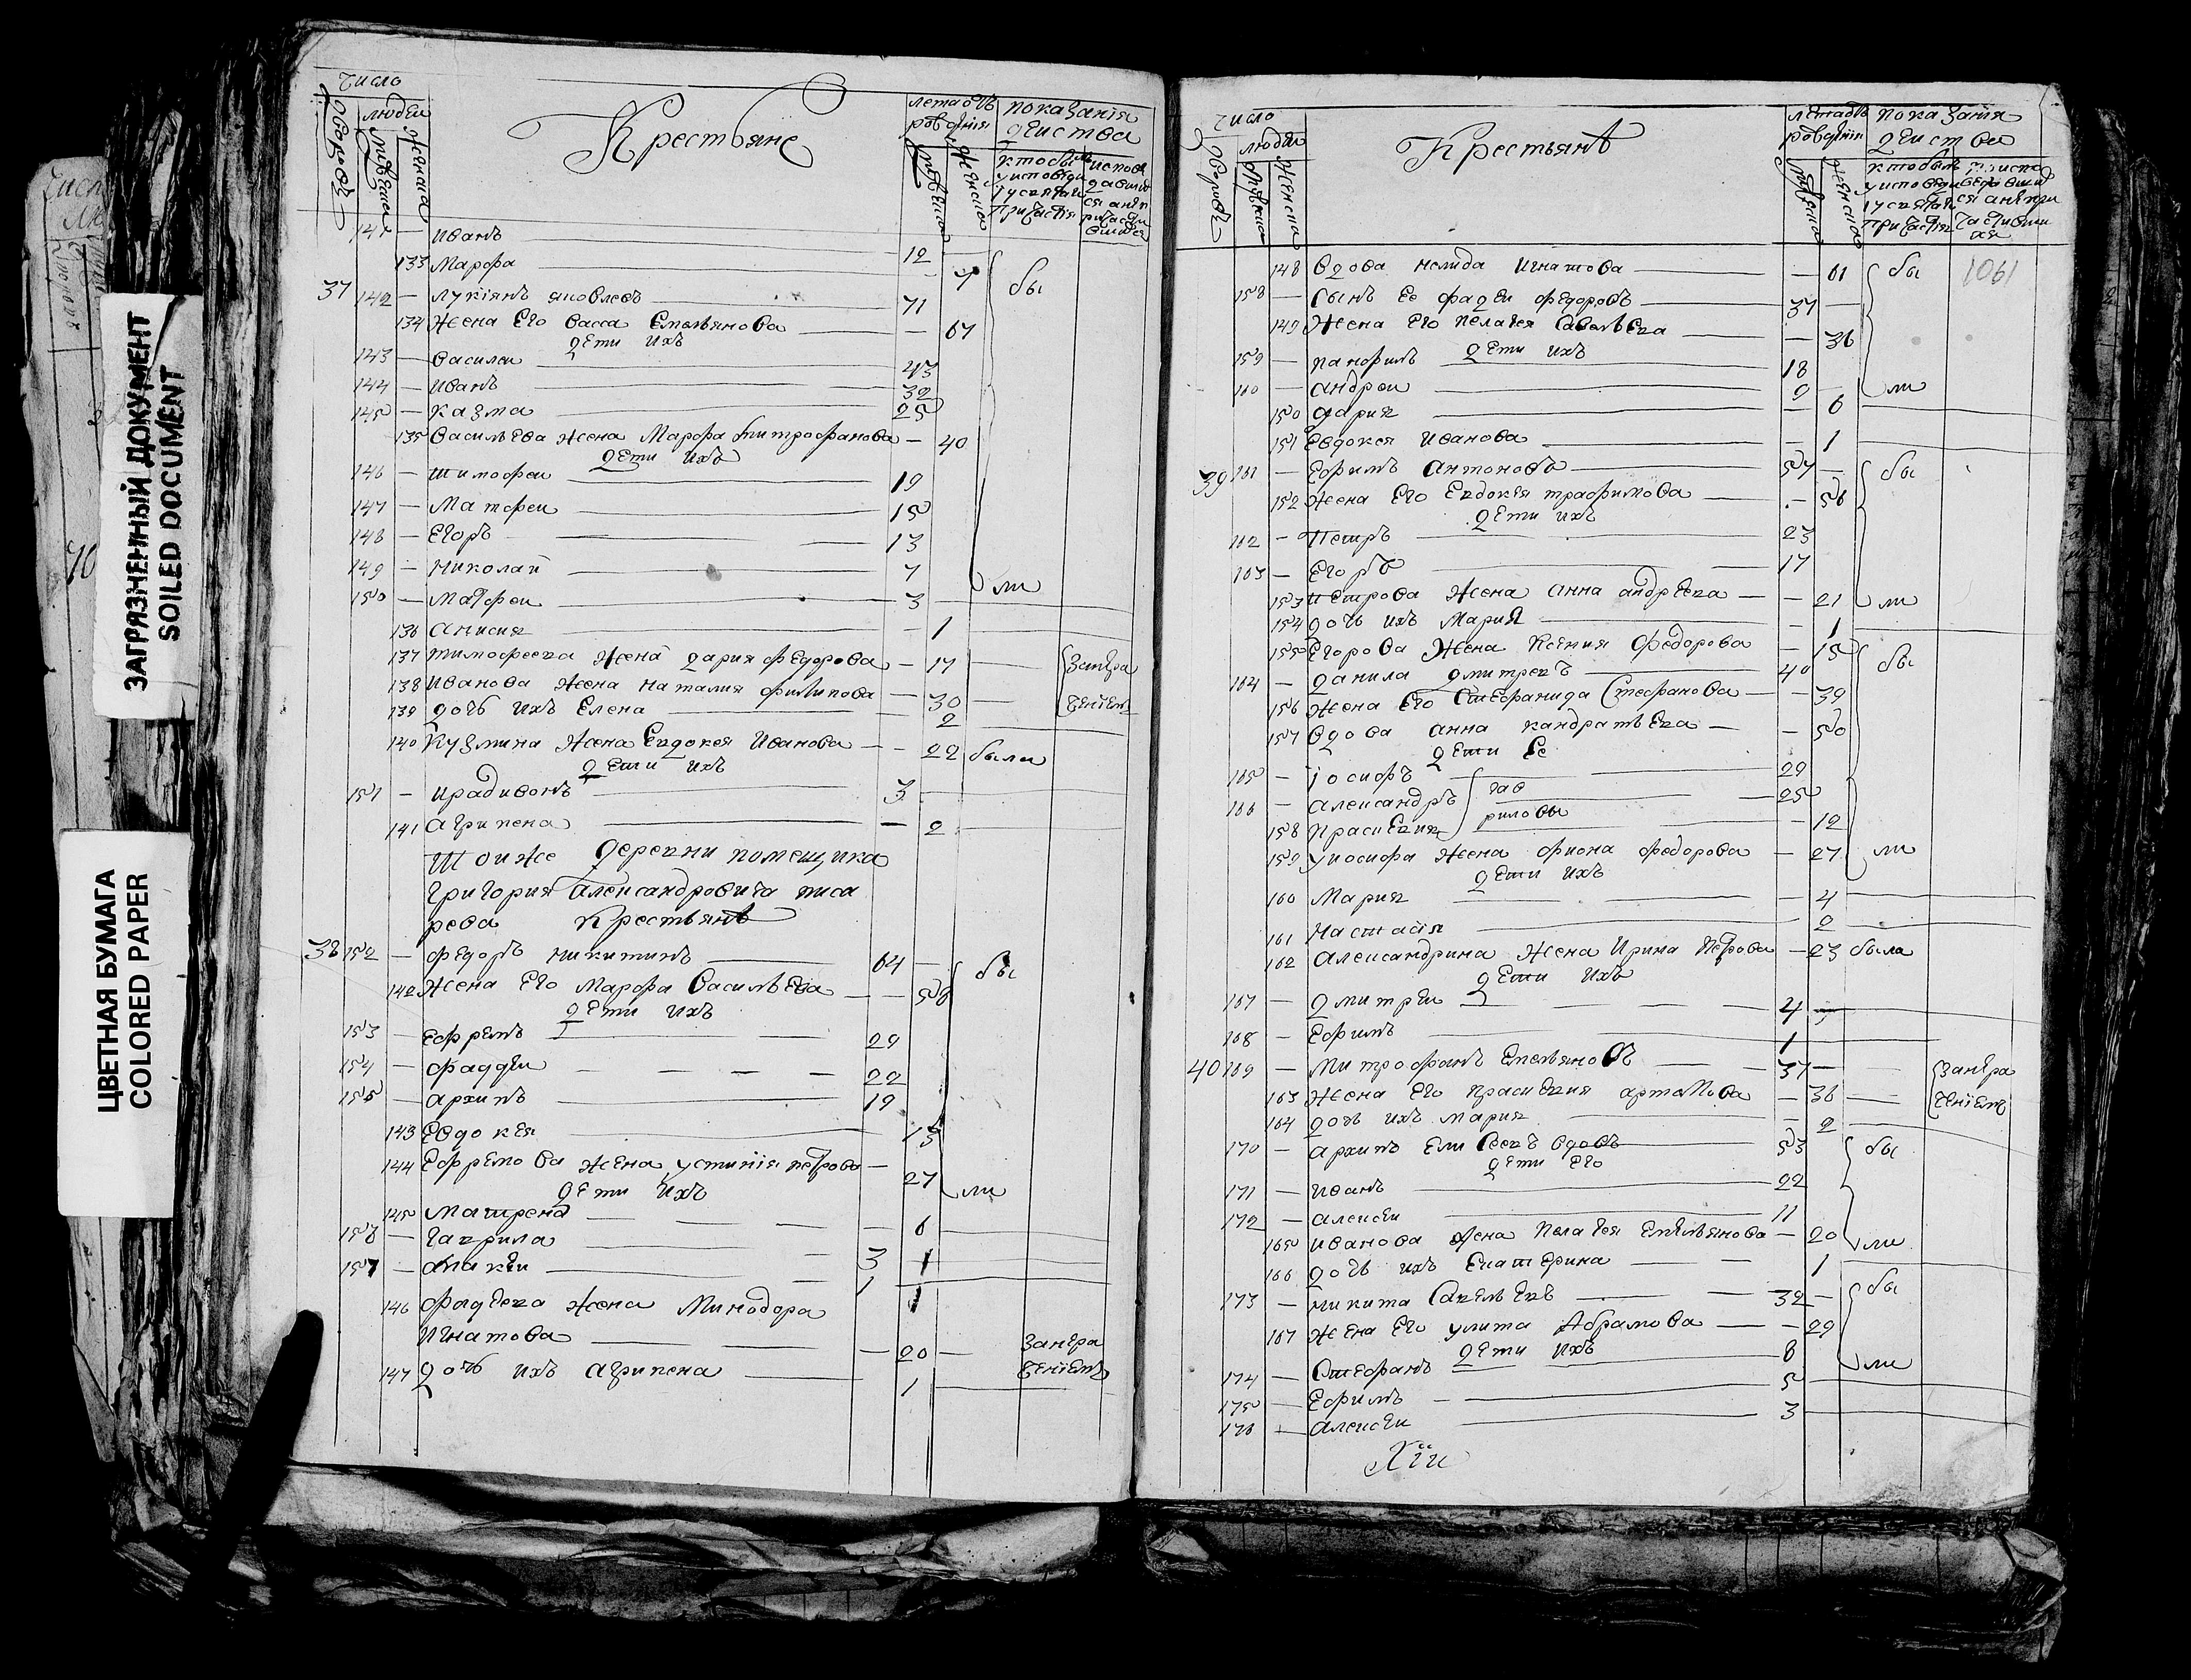 ЗАГРЯЗНЕННЫЙ ДОКУМЕНТ
SOILED DOCUMENT
ЦВЕТНАЯ БУМАГА
COLORED PAPER
Число
дворовъ
людей
мужеска
женска
Крестьяне
лета отъ рождения
мужеска
женска
показания действа
141 — Иванъ — 12
133 Марфа — 7 бы
37 142 — Лукиянъ Яковлевъ — 71
134 Жена Его Васса Емельянова — 67
дети ихъ
143 — Василеи 43
144 — Иванъ 32
145 — Казма 25
135 Васильева жена Марфа Митрофанова — 40
дети ихъ
146 — Тимофеи 19
147 — Матфеи 15
148 — Егоръ 13
149 — Николай 7 ли
150 — Матфеи 3
136 Анисия 1
137 Тимофеева жена Дария Федорова — 17
138 Иванова жена Наталия Филипова — 30
139 дочь ихъ Елена 2
140 Кузмина жена Евдокея Иванова — 22 были
дети ихъ
151 — Иродионъ 3
141 Агрипена — 2
Тои же деревни помещика
Григория Александровича Писа
рева Крестьянъ
38 152 — Федоръ Никитинъ 64 бы
142 Жена Его Марфа Васильева — 58
дети ихъ
153 — Ефремъ 29
154 — Фаддеи 22
155 — Архипъ 19
143 Евдокея 13
144 Ефремова жена Устиния Петрова — 27 ли
дети ихъ
145 Матрена — 6
156 — Гаврила 3
157 — 1
146 Фадеева жена Минодора
Игнатова — 20
147 дочь ихъ Агрипена 1
Число
дворовъ
людей
женска
Крестьянъ
лета отъ рождения
женска
показания действа
148 Вдова Игнатова — 61 бы 1061
158 — Сынъ ее Фадеи Федоровъ 37
149 Жена Его Пелагея Савельева — 36
дети ихъ
159 — Панфилъ 18
160 — Андреи 9 ли
150 Дария — 6
151 Евдокея Иванова — 1
39 161 — Ефимъ Антоновъ 57 бы
152 Жена Его Евдокея Трафимова — 56
дети ихъ
162 — Петръ 23
163 — Егоръ 17
153 Петрова жена Анна Андреева — 21 ли
154 дочь ихъ Мария — 1
155 Егорова жена Ксения Федорова — 15 бы
164 — Данила Дмитревъ 40
156 Жена Его Стефанида Стефанова — 39
157 Вдова Анна Кандратьева — 50
дети Ее
165 — Иосифъ гав 29
166 — Александръ риловы 25
158 Прасковия 12
159 У Иосифа жена Фиона Федорова — 27 ли
дети ихъ
160 Мария — 4
161 Настасия 2
162 Александрина жена Ирина Петрова — 23 была
дети ихъ
167 — Дмитреи 4
168 — Ефимъ 1
40 169 — Митрофанъ Емельяновъ 37
163 Жена Его Прасковия Артамова — 36
164 дочь ихъ Мария — 2
170 — Архипъ Елисеевъ вдовъ 53 бы
дети Его
171 — Иванъ 22
172 — Алексеи 11
165 Иванова жена Пелагея Емельянова — 20 ли
166 дочь ихъ Екатерина 1
173 — Никита Савельевъ 32 бы
167 Жена Его Улита Абрамова — 29
дети ихъ
174 — Стефанъ 8 ли
175 — Ефимъ 5
176 — Алексеи 3